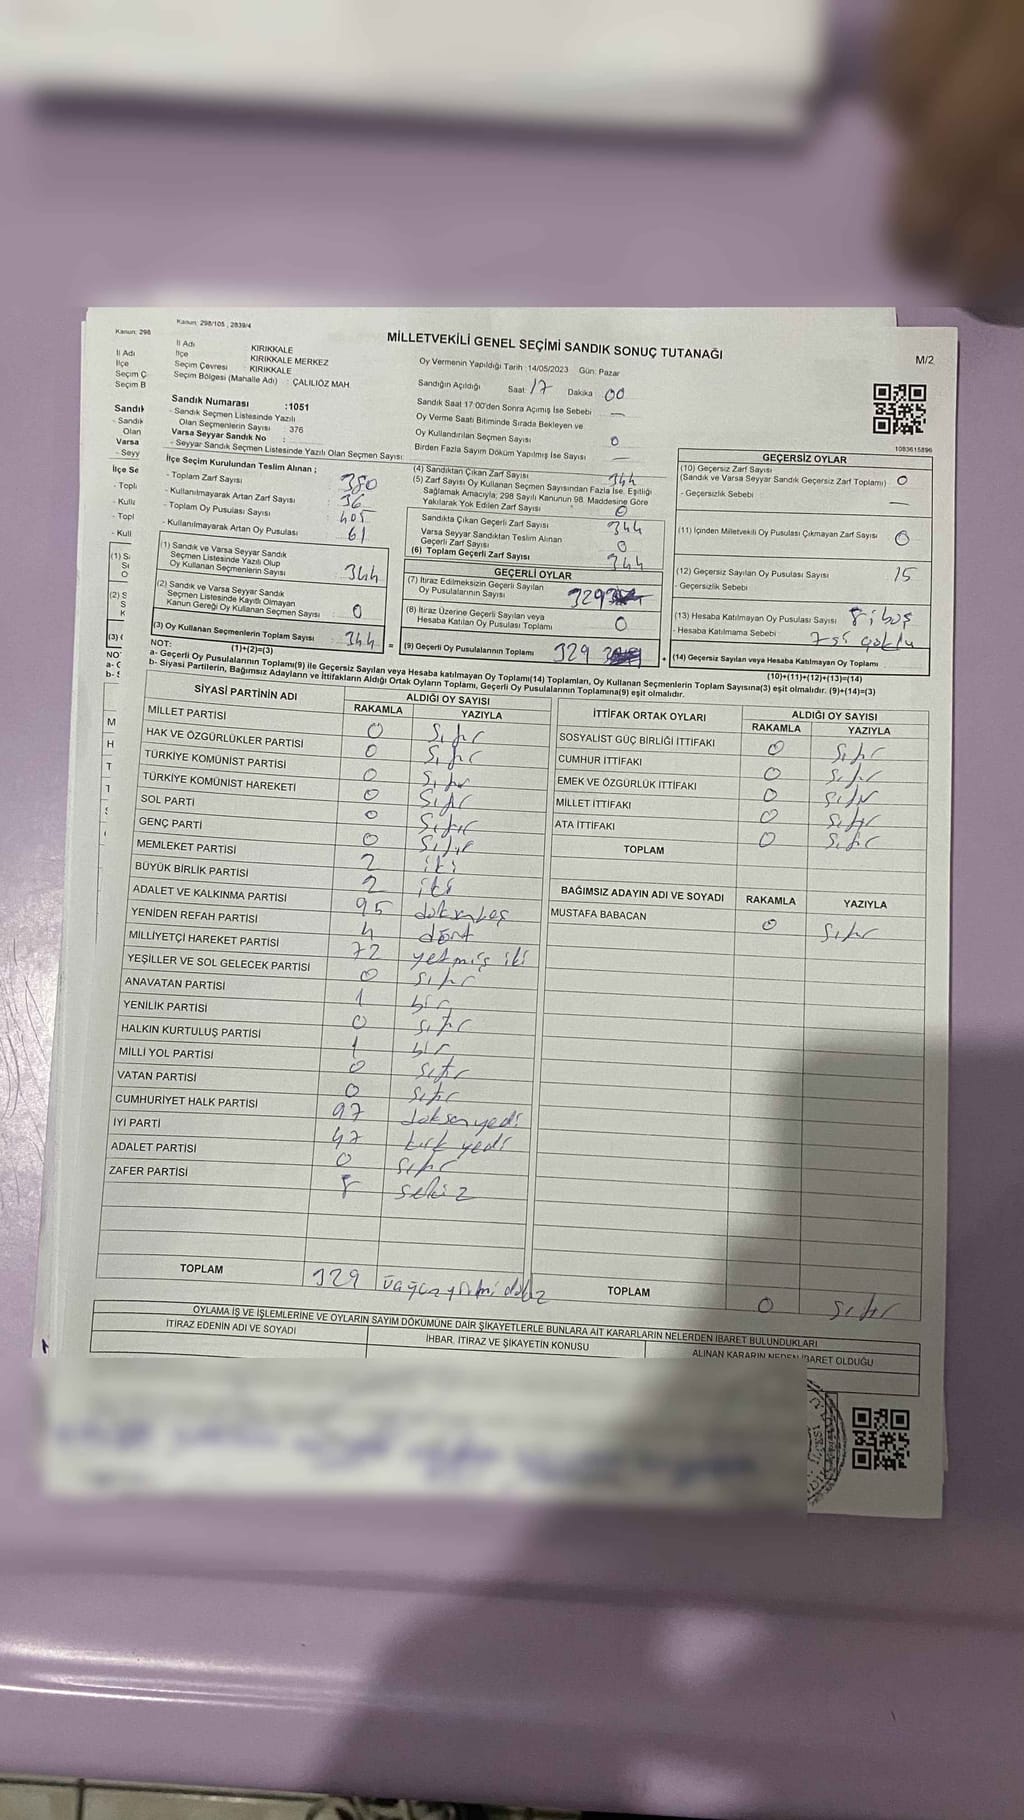 Kanun: 298/105 , 2839/4
Kanun: 298
MİLLETVEKİLİ GENEL SEÇİMİ SANDIK SONUÇ TUTANAĞI
M/2
İl Adı KIRIKKALE
İlçe KIRIKKALE MERKEZ
Seçim Çevresi : KIRIKKALE
Seçim Bölgesi (Mahalle Adı) : ÇALILIÖZ MAH
Oy Vermenin Yapıldığı Tarih :14/05/2023 Gün: Pazar
Sandığın Açıldığı Saat 17 Dakika 00
Sandık Saat 17:00'den Sonra Açımış İse Sebebi —
Oy Verme Saati Bitiminde Sırada Bekleyen ve
Oy Kullandırılan Seçmen Sayısı 0
Birden Fazla Sayım Döküm Yapılmış İse Sayısı —
1083615896
Sandık Numarası :1051
- Sandık Seçmen Listesinde Yazılı
Olan Seçmenlerin Sayısı : 376
Varsa Seyyar Sandık No :
- Seyyar Sandık Seçmen Listesinde Yazılı Olan Seçmen Sayısı:
İlçe Seçim Kurulundan Teslim Alınan ;
- Toplam Zarf Sayısı 380
- Kullanılmayarak Artan Zarf Sayısı 36
- Toplam Oy Pusulası Sayısı 405
- Kullanılmayarak Artan Oy Pusulası 61
(1) Sandık ve Varsa Seyyar Sandık
Seçmen Listesinde Yazılı Olup
Oy Kullanan Seçmenlerin Sayısı 344
(2) Sandık ve Varsa Seyyar Sandık
Seçmen Listesinde Kayıtlı Olmayan
Kanun Gereği Oy Kullanan Seçmen Sayısı 0
(3) Oy Kullanan Seçmenlerin Toplam Sayısı 344 =
(1)+(2)=(3)
(4) Sandıktan Çıkan Zarf Sayısı 344
(5) Zarf Sayısı Oy Kullanan Seçmen Sayısından Fazla İse, Eşitliği
Sağlamak Amacıyla; 298 Sayılı Kanunun 98. Maddesine Göre
Yakılarak Yok Edilen Zarf Sayısı 0
Sandıkta Çıkan Geçerli Zarf Sayısı 344
Varsa Seyyar Sandıktan Teslim Alınan
Geçerli Zarf Sayısı 0
(6) Toplam Geçerli Zarf Sayısı 344
GEÇERLİ OYLAR
(7) İtiraz Edilmeksizin Geçerli Sayılan
Oy Pusulalarının Sayısı 329
(8) İtiraz Üzerine Geçerli Sayılan veya
Hesaba Katılan Oy Pusulası Toplamı 0
(9) Geçerli Oy Pusulalarının Toplamı 329 +
GEÇERSİZ OYLAR
(10) Geçersiz Zarf Sayısı
(Sandık ve Varsa Seyyar Sandık Geçersiz Zarf Toplamı) 0
- Geçersizlik Sebebi —
(11) İçinden Milletvekili Oy Pusulası Çıkmayan Zarf Sayısı 0
(12) Geçersiz Sayılan Oy Pusulası Sayısı 15
- Geçersizlik Sebebi
(13) Hesaba Katılmayan Oy Pusulası Sayısı 8'i boş
- Hesaba Katılmama Sebebi 7si çoklu
(14) Geçersiz Sayılan veya Hesaba Katılmayan Oy Toplamı
(10)+(11)+(12)+(13)=(14)
NOT:
a- Geçerli Oy Pusulalarının Toplamı(9) ile Geçersiz Sayılan veya Hesaba katılmayan Oy Toplamı(14) Toplamları, Oy Kullanan Seçmenlerin Toplam Sayısına(3) eşit olmalıdır. (9)+(14)=(3)
b- Siyasi Partilerin, Bağımsız Adayların ve İttifakların Aldığı Ortak Oyların Toplamı, Geçerli Oy Pusulalarının Toplamına(9) eşit olmalıdır.
SİYASİ PARTİNİN ADI ALDIĞI OY SAYISI
RAKAMLA YAZIYLA
MİLLET PARTİSİ 0 Sıfır
HAK VE ÖZGÜRLÜKLER PARTİSİ 0 Sıfır
TÜRKİYE KOMÜNİST PARTİSİ 0 Sıfır
TÜRKİYE KOMÜNİST HAREKETİ 0 Sıfır
SOL PARTİ 0 Sıfır
GENÇ PARTİ 0 Sıfır
MEMLEKET PARTİSİ 2 iki
BÜYÜK BİRLİK PARTİSİ 2 iki
ADALET VE KALKINMA PARTİSİ 95 doksanbeş
YENİDEN REFAH PARTİSİ 4 dört
MİLLİYETÇİ HAREKET PARTİSİ 72 yetmiş iki
YEŞİLLER VE SOL GELECEK PARTİSİ 0 sıfır
ANAVATAN PARTİSİ 1 bir
YENİLİK PARTİSİ 0 sıfır
HALKIN KURTULUŞ PARTİSİ 1 bir
MİLLİ YOL PARTİSİ 0 sıfır
VATAN PARTİSİ 0 sıfır
CUMHURİYET HALK PARTİSİ 97 doksanyedi
İYİ PARTİ 47 kırk yedi
ADALET PARTİSİ 0 sıfır
ZAFER PARTİSİ 8 sekiz
TOPLAM 329 üçyüzyirmi dokuz
İTTİFAK ORTAK OYLARI ALDIĞI OY SAYISI
RAKAMLA YAZIYLA
SOSYALİST GÜÇ BİRLİĞİ İTTİFAKI 0 Sıfır
CUMHUR İTTİFAKI 0 Sıfır
EMEK VE ÖZGÜRLÜK İTTİFAKI 0 Sıfır
MİLLET İTTİFAKI 0 Sıfır
ATA İTTİFAKI 0 Sıfır
TOPLAM
BAĞIMSIZ ADAYIN ADI VE SOYADI RAKAMLA YAZIYLA
MUSTAFA BABACAN 0 Sıfır
TOPLAM 0 Sıfır
OYLAMA İŞ VE İŞLEMLERİNE VE OYLARIN SAYIM DÖKÜMÜNE DAİR ŞİKAYETLERLE BUNLARA AİT KARARLARIN NELERDEN İBARET BULUNDUKLARI
İTİRAZ EDENİN ADI VE SOYADI İHBAR, İTİRAZ VE ŞİKAYETİN KONUSU ALINAN KARARIN NEDEN İBARET OLDUĞU